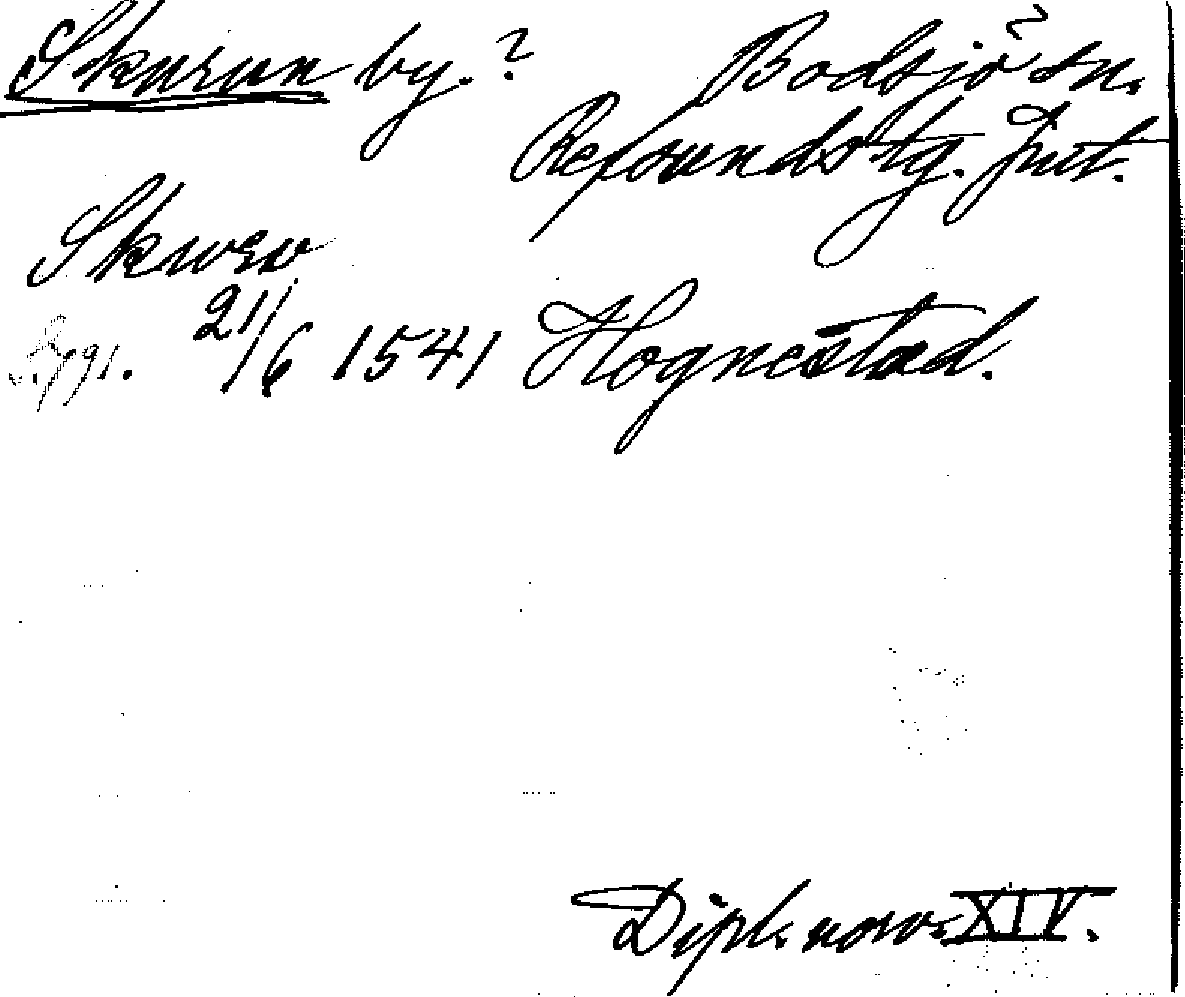 Skurun by.? Bodsjö sn.
Refsunds tg. Jmt.
Skuro
21/6 1541 Hognestad.
Dipl. norv. XIV.